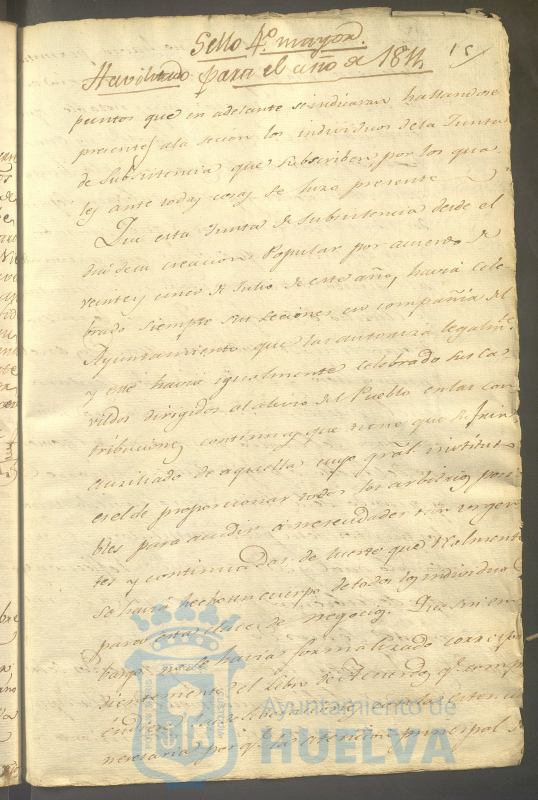 Sello 4.º mayor.
Havilitado para el año de 1811.
15
puntos que en adelante se indicaran hallandose
presentes ala secion los individuos dela Junta
de Subsistencia que subscriben, por los qua
les ante todas cosas se hizo presente
Que esta Junta de Subsistencia desde el
dia de su creacion Popular por acuerdo de
veinte y cinco de Julio de este año, havia cele
brado siempre sus seciones en compañia del
Ayuntamiento que las autoriza legalm.te
y este havia igualmente celebrado sus Ca
vildos dirigidos al alivio del Pueblo en las con
tribuciones continuas que tiene que sufrir
auxiliado de aquella cuyo gral. instituto
es el de proporcionar todos los arbitrios posi
bles para acudir a necesidades tan urgen
tes y continuadas de suerte que realmente
se havia hecho un cuerpo de todos los individuos
para esta clase de negocios. Que sin em
bargo no se havia formalizado correspon
dientemente el Libro de Acuerdos q.e comp
necesarias por q.e la atencion principal
Ayuntamiento de
HUELVA